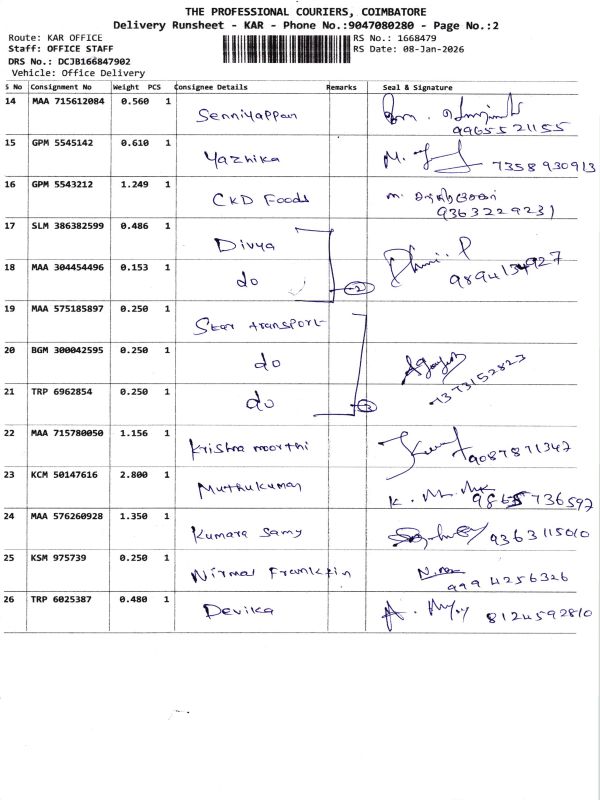 THE PROFESSIONAL COURIERS, COIMBATORE
Delivery Runsheet - KAR - Phone No.:9047080280 - Page No.:2
Route: KAR OFFICE
RS No.: 1668479
Staff: OFFICE STAFF
RS Date: 08-Jan-2026
DRS No.: DCJB166847902
Vehicle: Office Delivery
S No Consignment No Weight PCS Consignee Details Remarks Seal & Signature
14 MAA 715612084 0.560 1 Senniyappan
9965521155
15 GPM 5545142 0.610 1 Yazhika M. 7358930913
16 GPM 5543212 1.249 1 CKD Foods
9363229231
17 SLM 386382599 0.486 1 Divya
18 MAA 304454496 0.153 1 do 2 9894134927
19 MAA 575185897 0.250 1 Star transport
20 BGM 300042595 0.250 1 do
7373152823
21 TRP 6962854 0.250 1 do 3
22 MAA 715780050 1.156 1 Krishna moorthi 9087871347
23 KCM 50147616 2.800 1 Muthukumar K. 9865736597
24 MAA 576260928 1.350 1 Kumara Samy 9363115010
25 KSM 975739 0.250 1 Nirmal Franklin
9994256326
26 TRP 6025387 0.480 1 Devika A. 8124592810